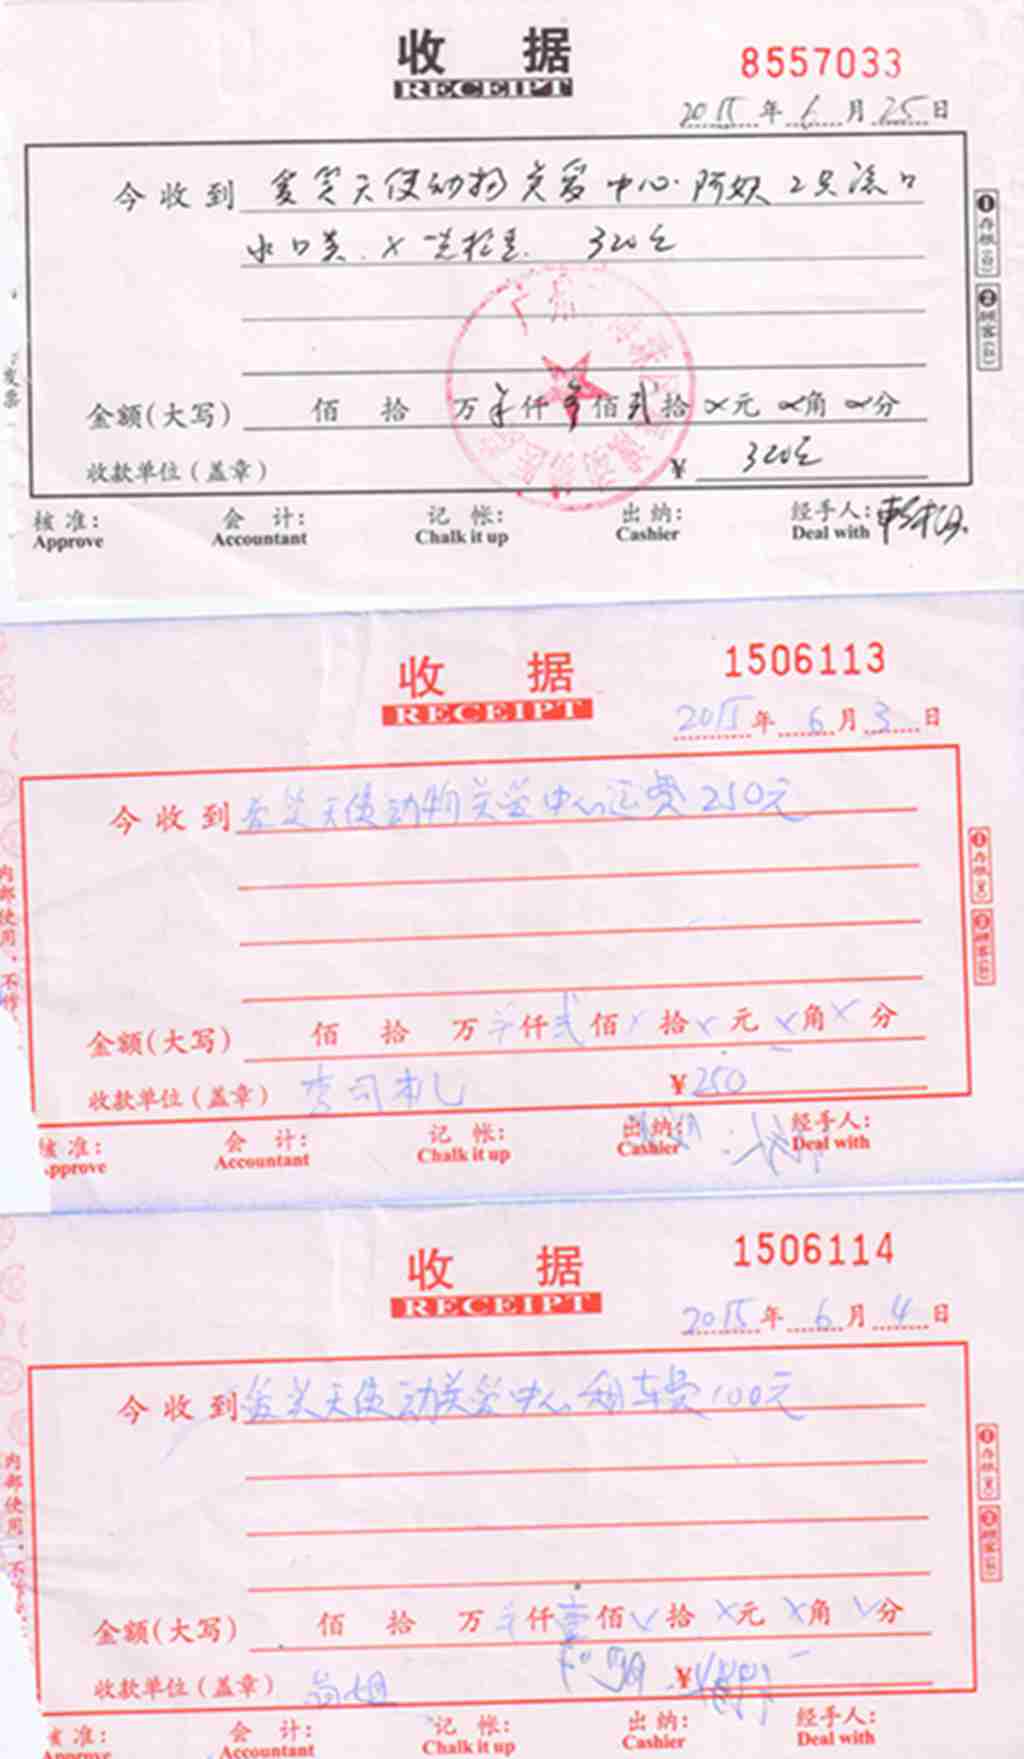 收 据
RECEIPT
8557033
2015年6月25日
今收到 爱笑天使动物关爱中心.阿奴2只流口
水口炎.X光检查. 320元
金额(大写) 佰 拾 万 仟叁佰贰拾 元 角 分
收款单位(盖章) ¥ 320元
核 准: 会 计: 记 帐: 出 纳: 经手人:
Approve Accountant Chalk it up Cashier Deal with
收 据
RECEIPT
1506113
2015年6月3日
今收到 爱笑天使动物关爱中心运费250元
金额(大写) 佰 拾 万 仟贰佰 拾 元 角 分
收款单位(盖章) 李司机 ¥250
内部使用,不作
核 准: 会 计: 记 帐: 出 纳: 经手人:
Approve Accountant Chalk it up Cashier Deal with
收 据
RECEIPT
1506114
2015年6月4日
今收到 爱笑天使动关爱中心租车费100元
金额(大写) 佰 拾 万 仟壹佰 拾 元 角 分
收款单位(盖章) ¥
内部使用,不
核 准: 会 计: 记 帐: 出 纳: 经手人:
Approve Accountant Chalk it up Cashier Deal with